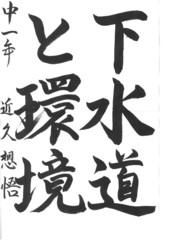 下水道
と環境
中一年 近久想悟